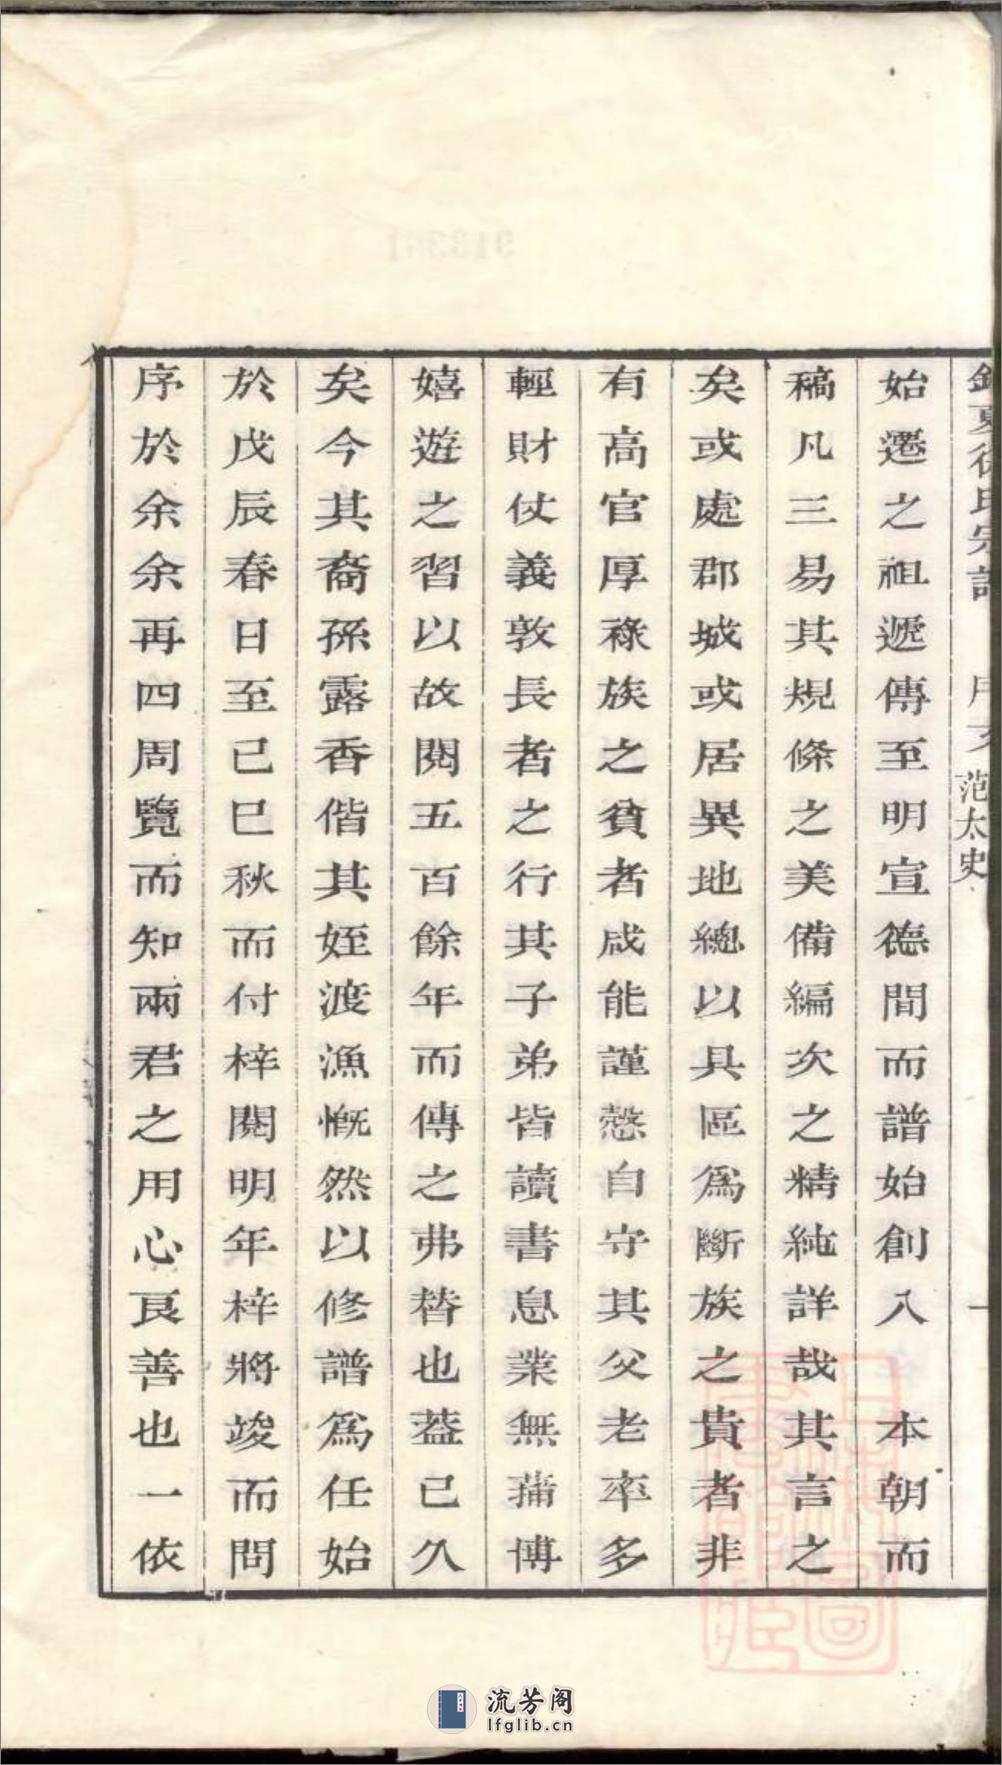 范太史
始遷之祖遞傳至明宣德間而譜始創入　本朝而
稿凡三易其規條之美備編次之精純詳哉其言之
矣或處郡城或居異地總以具區爲斷族之貴者非
有高官厚祿族之貧者咸能謹愨自守其父老率多
輕財仗義敦長者之行其子弟皆讀書息業無蒱博
嬉遊之習以故閱五百餘年而傳之弗替也葢已久
矣今其裔孫露香偕其姪渡漁慨然以修譜爲任始
於戊辰春日至己巳秋而付梓閱明年梓將竣而問
序於余余再四周覽而知兩君之用心良善也一依
流芳阁
lfglib.cn